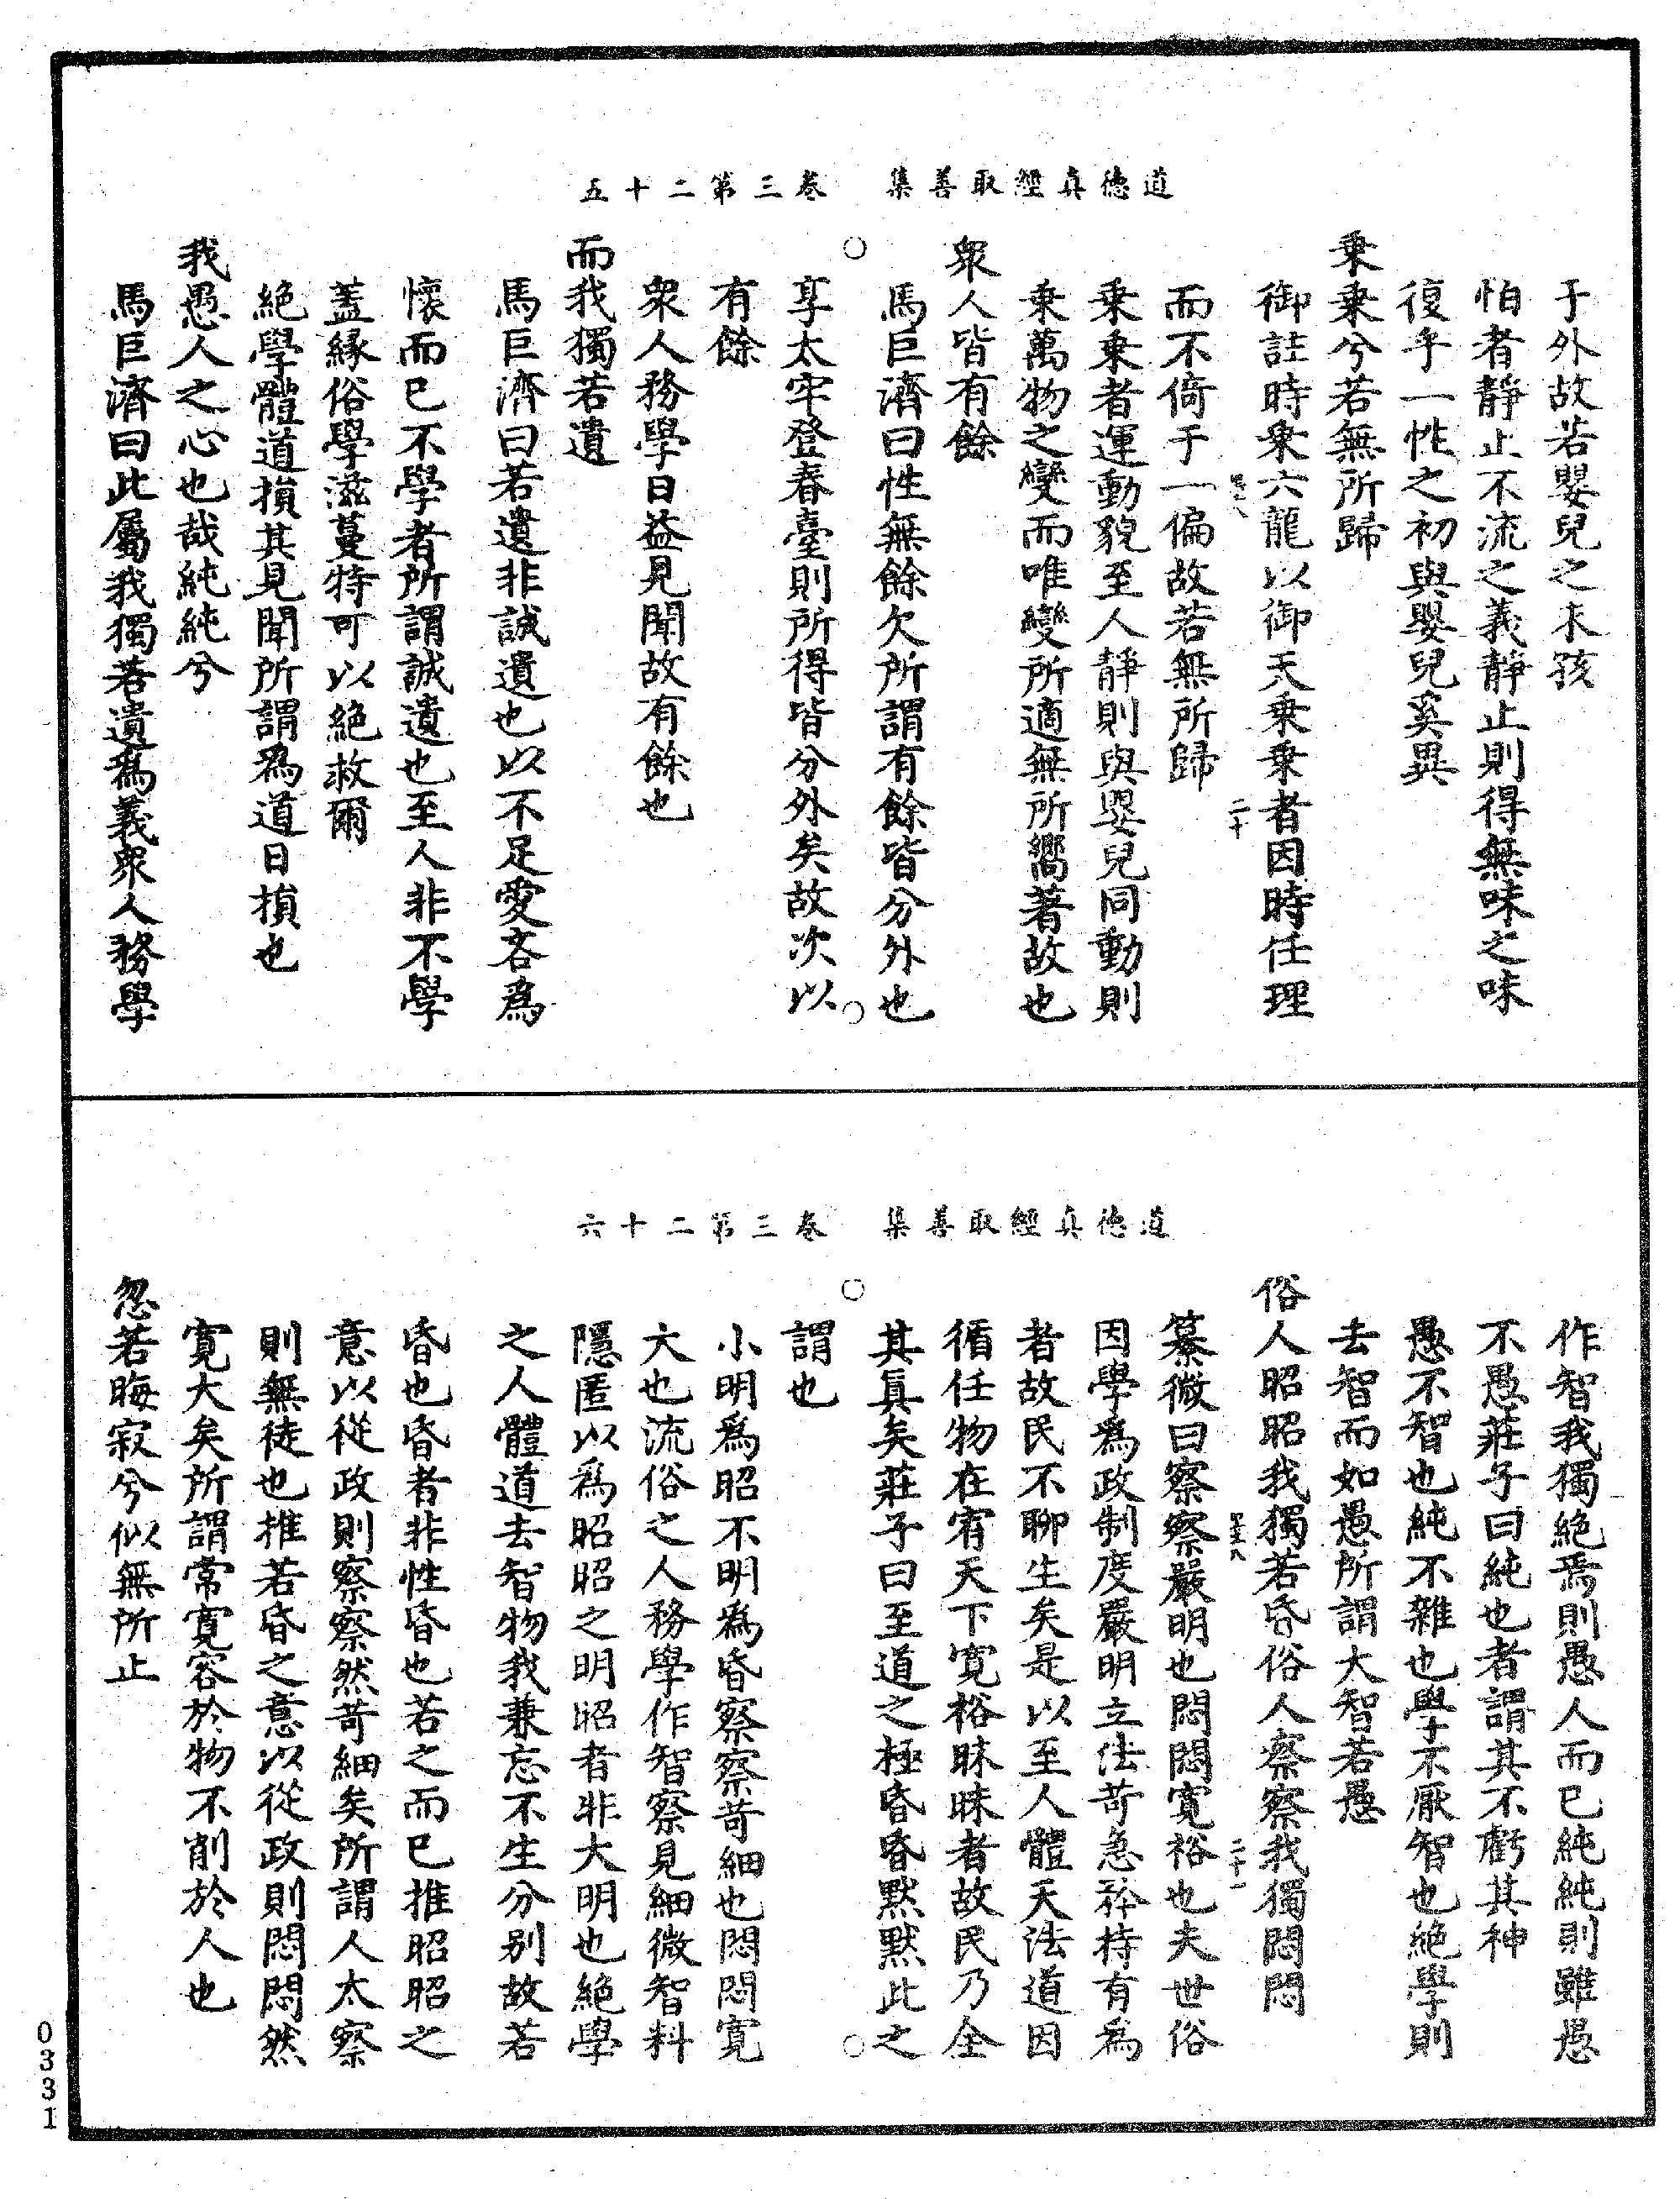 道德真經取善集　卷三第二十五
于外故若嬰兒之未孩
怕者靜止不流之義靜止則得無味之味
復乎一性之初與嬰兒奚異
乘乘兮若無所歸
御註時乘六龍以御天乘乘者因時任理
二十
而不倚于一偏故若無所歸
乘乘者運動貌至人靜則與嬰兒同動則
乘萬物之變而唯變所適無所嚮著故也
衆人皆有餘
馬巨濟曰性無餘欠所謂有餘皆分外也
享太牢登春臺則所得皆分外矣故次以
有餘
衆人務學日益見聞故有餘也
而我獨若遺
馬巨濟曰若遺非誠遺也以不足愛吝爲
懷而已不學者所謂誠遺也至人非不學
蓋緣俗學滋蔓特可以絕救爾
絕學體道損其見聞所謂爲道日損也
我愚人之心也哉純純兮
馬巨濟曰此屬我獨若遺爲義衆人務學
道德真經取善集　卷三第二十六
作智我獨絕焉則愚人而已純純則雖愚
不愚莊子曰純也者謂其不虧其神
愚不智也純不雜也學不厭智也絕學則
去智而如愚所謂大智若愚
俗人昭昭我獨若昏俗人察察我獨悶悶
二十一
纂微曰察察嚴明也悶悶寬裕也夫世俗
因學爲政制度嚴明立法苛急矜持有爲
者故民不聊生矣是以至人體天法道因
循任物在宥天下寬裕昧昧者故民乃全
其真矣莊子曰至道之極昏昏默默此之
謂也
小明爲昭不明爲昏察察苛細也悶悶寬
大也流俗之人務學作智察見細微智料
隱匿以爲昭昭之明昭者非大明也絕學
之人體道去智物我兼忘不生分別故若
昏也昏者非性昏也若之而已推昭昭之
意以從政則察察然苛細矣所謂人太察
則無徒也推若昏之意以從政則悶悶然
寬大矣所謂常寬容於物不削於人也
忽若晦寂兮似無所止
0331